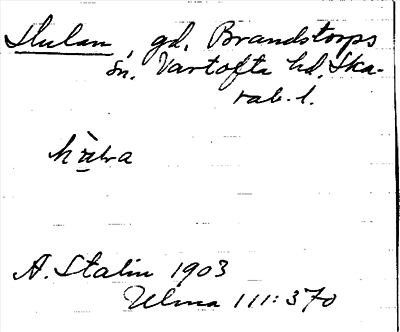 Hulan, gd, Brandstorps
sn. Vartofta hd. Ska-
rab. l.
A. Stalin 1903
Ulma 111:370